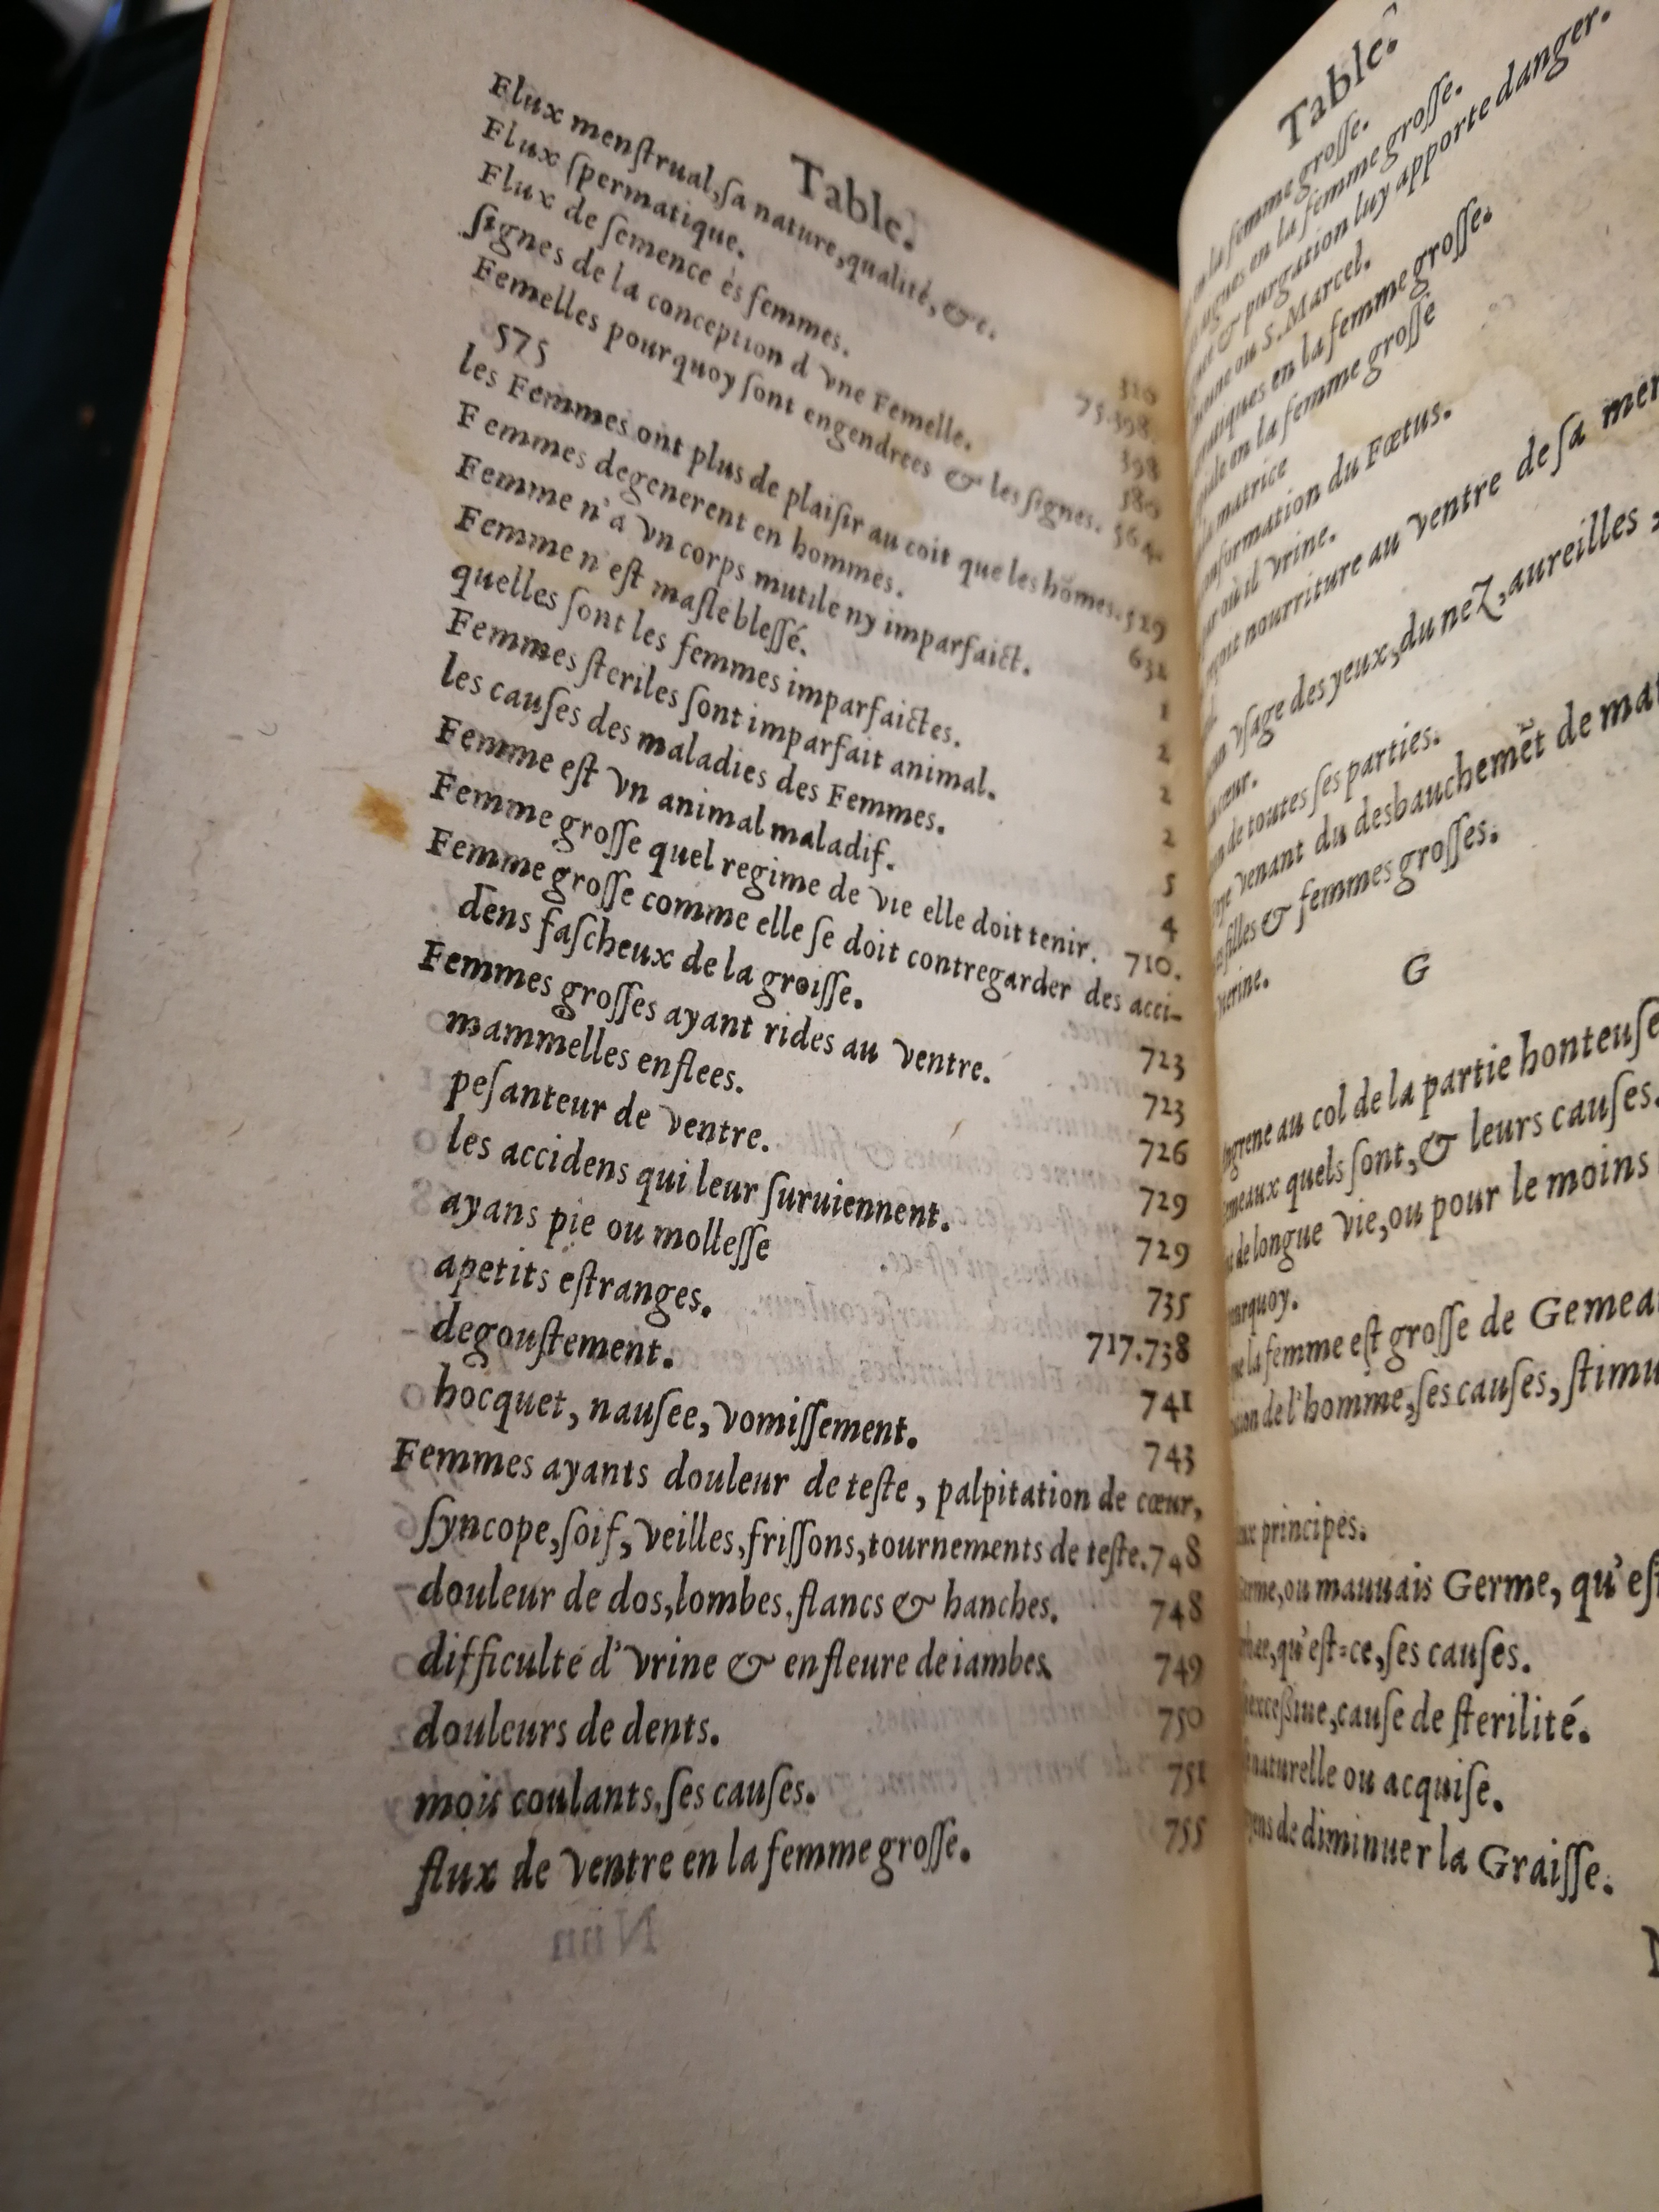 Table.
Flux menſtrual, ſa nature, qualité, &c. 310
Flux ſpermatique. 75.398
Flux de ſemence és femmes. 398
ſignes de la conception d'vne Femelle. 380
Femelles pourquoy ſont engendrees & les ſignes. 564.
575
les Femmes ont plus de plaiſir au coit que les hõmes. 529
Femmes degenerent en hommes. 632
Femme n'a vn corps mutile ny imparfaict. 1
Femme n'eſt maſle bleſſé. 2
quelles ſont les femmes imparfaictes. 2
Femmes ſteriles ſont imparfait animal. 2
les cauſes des maladies des Femmes. 5
Femme eſt vn animal maladif. 4
Femme groſſe quel regime de vie elle doit tenir. 710.
Femme groſſe comme elle ſe doit contregarder des acci-
dens faſcheux de la groiſſe. 723
Femmes groſſes ayant rides au ventre. 723
mammelles enflees. 726
peſanteur de ventre. 729
les accidens qui leur ſuruiennent. 729
ayans pie ou molleſſe 735
apetits eſtranges. 717.738
degouſtement. 741
hocquet, nauſee, vomiſſement. 743
Femmes ayants douleur de teſte, palpitation de cœur,
ſyncope, ſoif, veilles, friſſons, tournements de teſte. 748
douleur de dos, lombes, flancs & hanches. 748
difficulté d'vrine & enfleure de iambes. 749
douleurs de dents. 750
mois coulants, ſes cauſes. 751
flux de ventre en la femme groſſe. 755
Table.
en la femme groſſe.
en la femme groſſe.
& purgation luy apporte danger.
ou S. Marcel.
en la femme groſſe.
en la femme groſſe
matrice
du Fœtus.
par où il vrine.
nourriture au ventre de ſa
vſage des yeux, du neZ, aureilles,
de toutes ſes parties.
venant du desbauchemẽt de
filles & femmes groſſes.
G
au col de la partie honteuſe
quels ſont, & leurs cauſes.
de longue vie, ou pour le moins
la femme eſt groſſe de
de l'homme, ſes cauſes,
principes.
ou mauuais Germe, qu'eſt
qu'eſt-ce, ſes cauſes.
cauſe de ſterilité.
naturelle ou acquiſe.
de diminuer la Graiſſe.